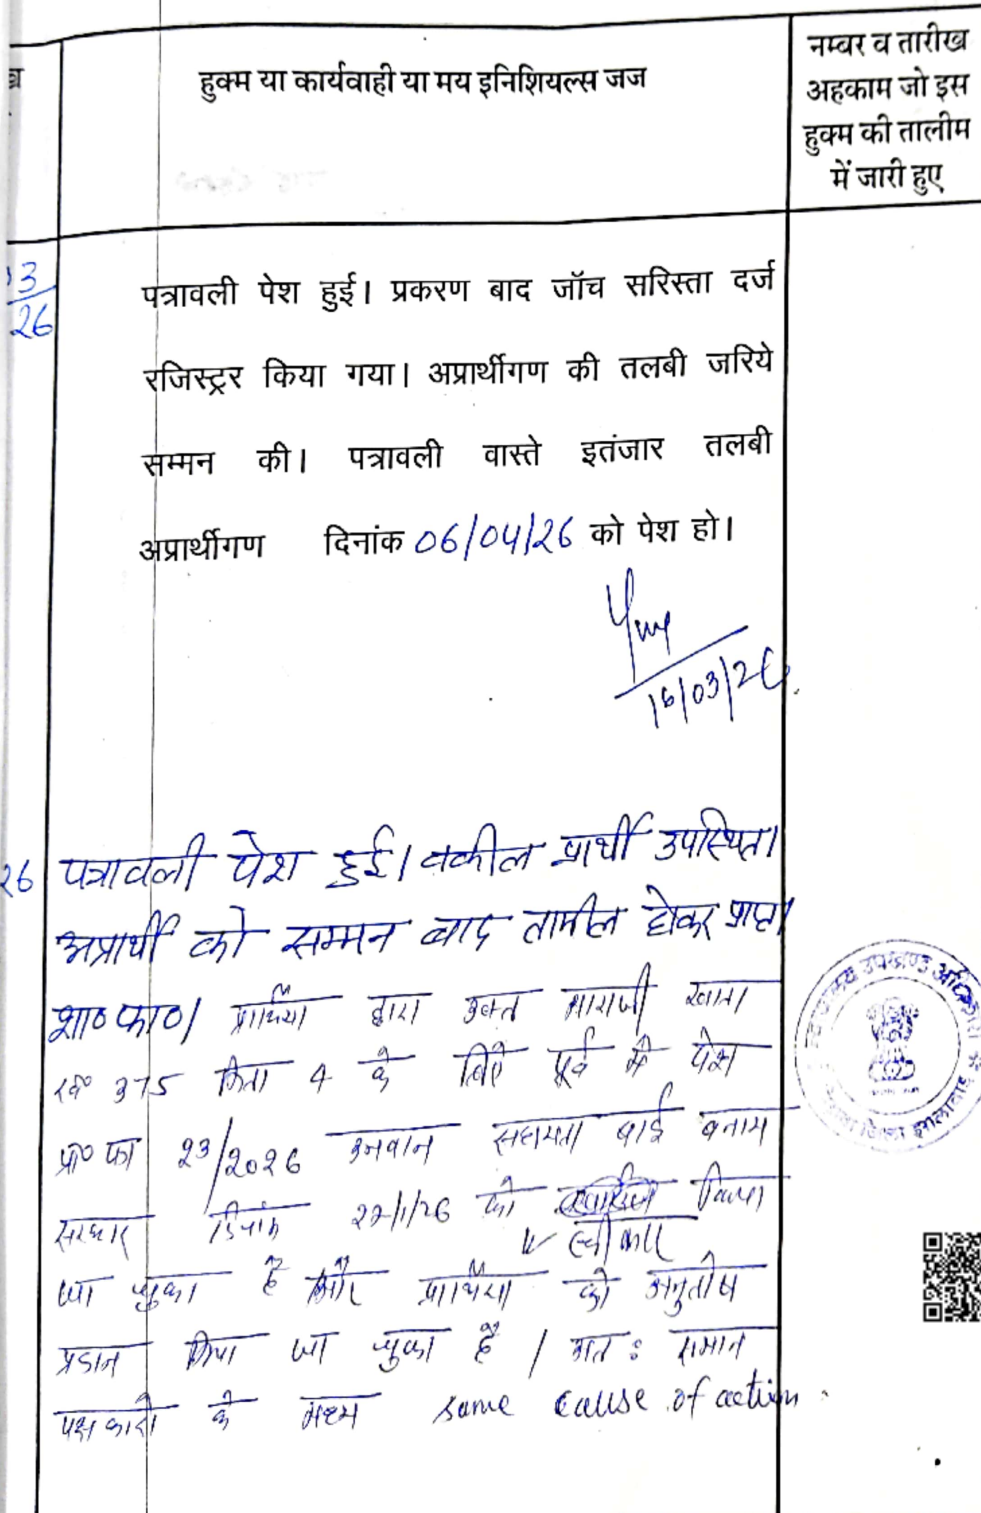 हुक्म या कार्यवाही या मय इनिशियल्स जज
नम्बर व तारीख
अहकाम जो इस
हुक्म की तालीम
में जारी हुए
3
26
पत्रावली पेश हुई। प्रकरण बाद जॉच सरिस्ता दर्ज
रजिस्ट्रर किया गया। अप्रार्थीगण की तलबी जरिये
सम्मन की। पत्रावली वास्ते इतंजार तलबी
अप्रार्थीगण दिनांक 06/04/26 को पेश हो।
16/03/26
26
पत्रावली पेश हुई। वकील प्रार्थी उपस्थित।
अप्रार्थी को सम्मन बाद तामील होकर प्राप्त।
शा० फा०। प्रार्थिया द्वारा उक्त आराजी खाता
सं० 375 किता 4 के लिऐ पूर्व मे पेश
प्रा० फा 23/2026 उनवान बाई बनाम
सरकार दिनांक 22/1/26 को किया
स्वीकार
जा चुका है और प्रार्थिया को अनुतोष
प्रदान किया जा चुका है। अतः समान
पक्षकारो के मध्य same cause of action